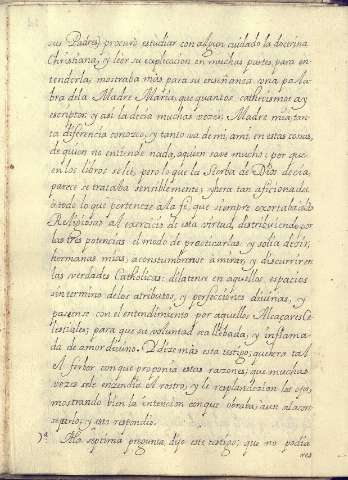 sus Padres) procuró estudiar con algun cuidado la doctrina
Christiana, y leer su explicacion en muchas partes para en-
tenderla; mostraba más para su enseñança una pala-
bra dela Madre Maria; que quantos cathecismos ay
escriptos: y asi la decia muchas veces: Madre mia tan-
ta diferencia conozco, y tanto va de mi, ami en estas cosas,
de quien no entiende nada, aquien save mucho; por que
en los libros se lee, pero lo que la Sierba de Dios decia,
parece se trataba sensiblemente; y hera tan aficionada
á todo lo que pertenece ala fé, que siempre exortaba alas
Religiosas al exercicio de esta virtud, distribuiendo por
las tres potencias el modo de practicarlas: y solía decir;
hermanas mias, acostumbrense à mirar, y discurrir en
las verdades Catholicas: dilatense en aquellos espacios
sin termino delos atributos, y perfecciones divinas, y
paseense con el entendimiento por aquellos Alcaçares Ce-
lestiales; para que su voluntad sea llebada, y inflama-
da de amor divino. Y dize más esta testigo, que era tal
el ferbor con que proponia estas razones, que muchas
vezes sele encendia el rostro, y le resplandecian los ojos,
mostrando bien la intencion con que obraba; aun al con-
seguirlo; y esto respondio.
7ª Ala septima pregunta dijo este testigo; que no podia